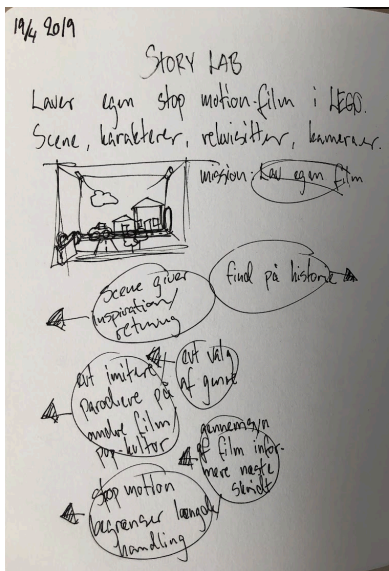 19/4 2019
STORY LAB
Laver egen stop motion-film i LEGO.
Scene, karakterer, rekvisitter, kameraer.
mission: Lav egen film
find på historie
Scene giver
inspiration/
retning
evt valg
af genre
evt imitere
parodiere på
andre film/
pop-kultur
gennemsyn
af film infor-
mere næste
skridt
stop motion
begrænser længde
handling